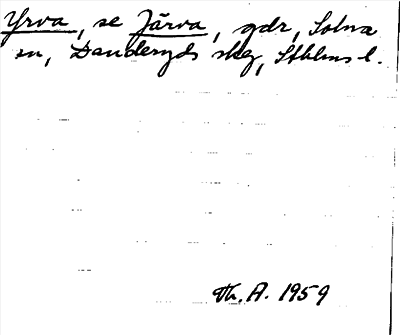 Yrva, se Järva, gdr, Solna
sn, Danderyds skg, Sthlms l.
Th. A. 1959